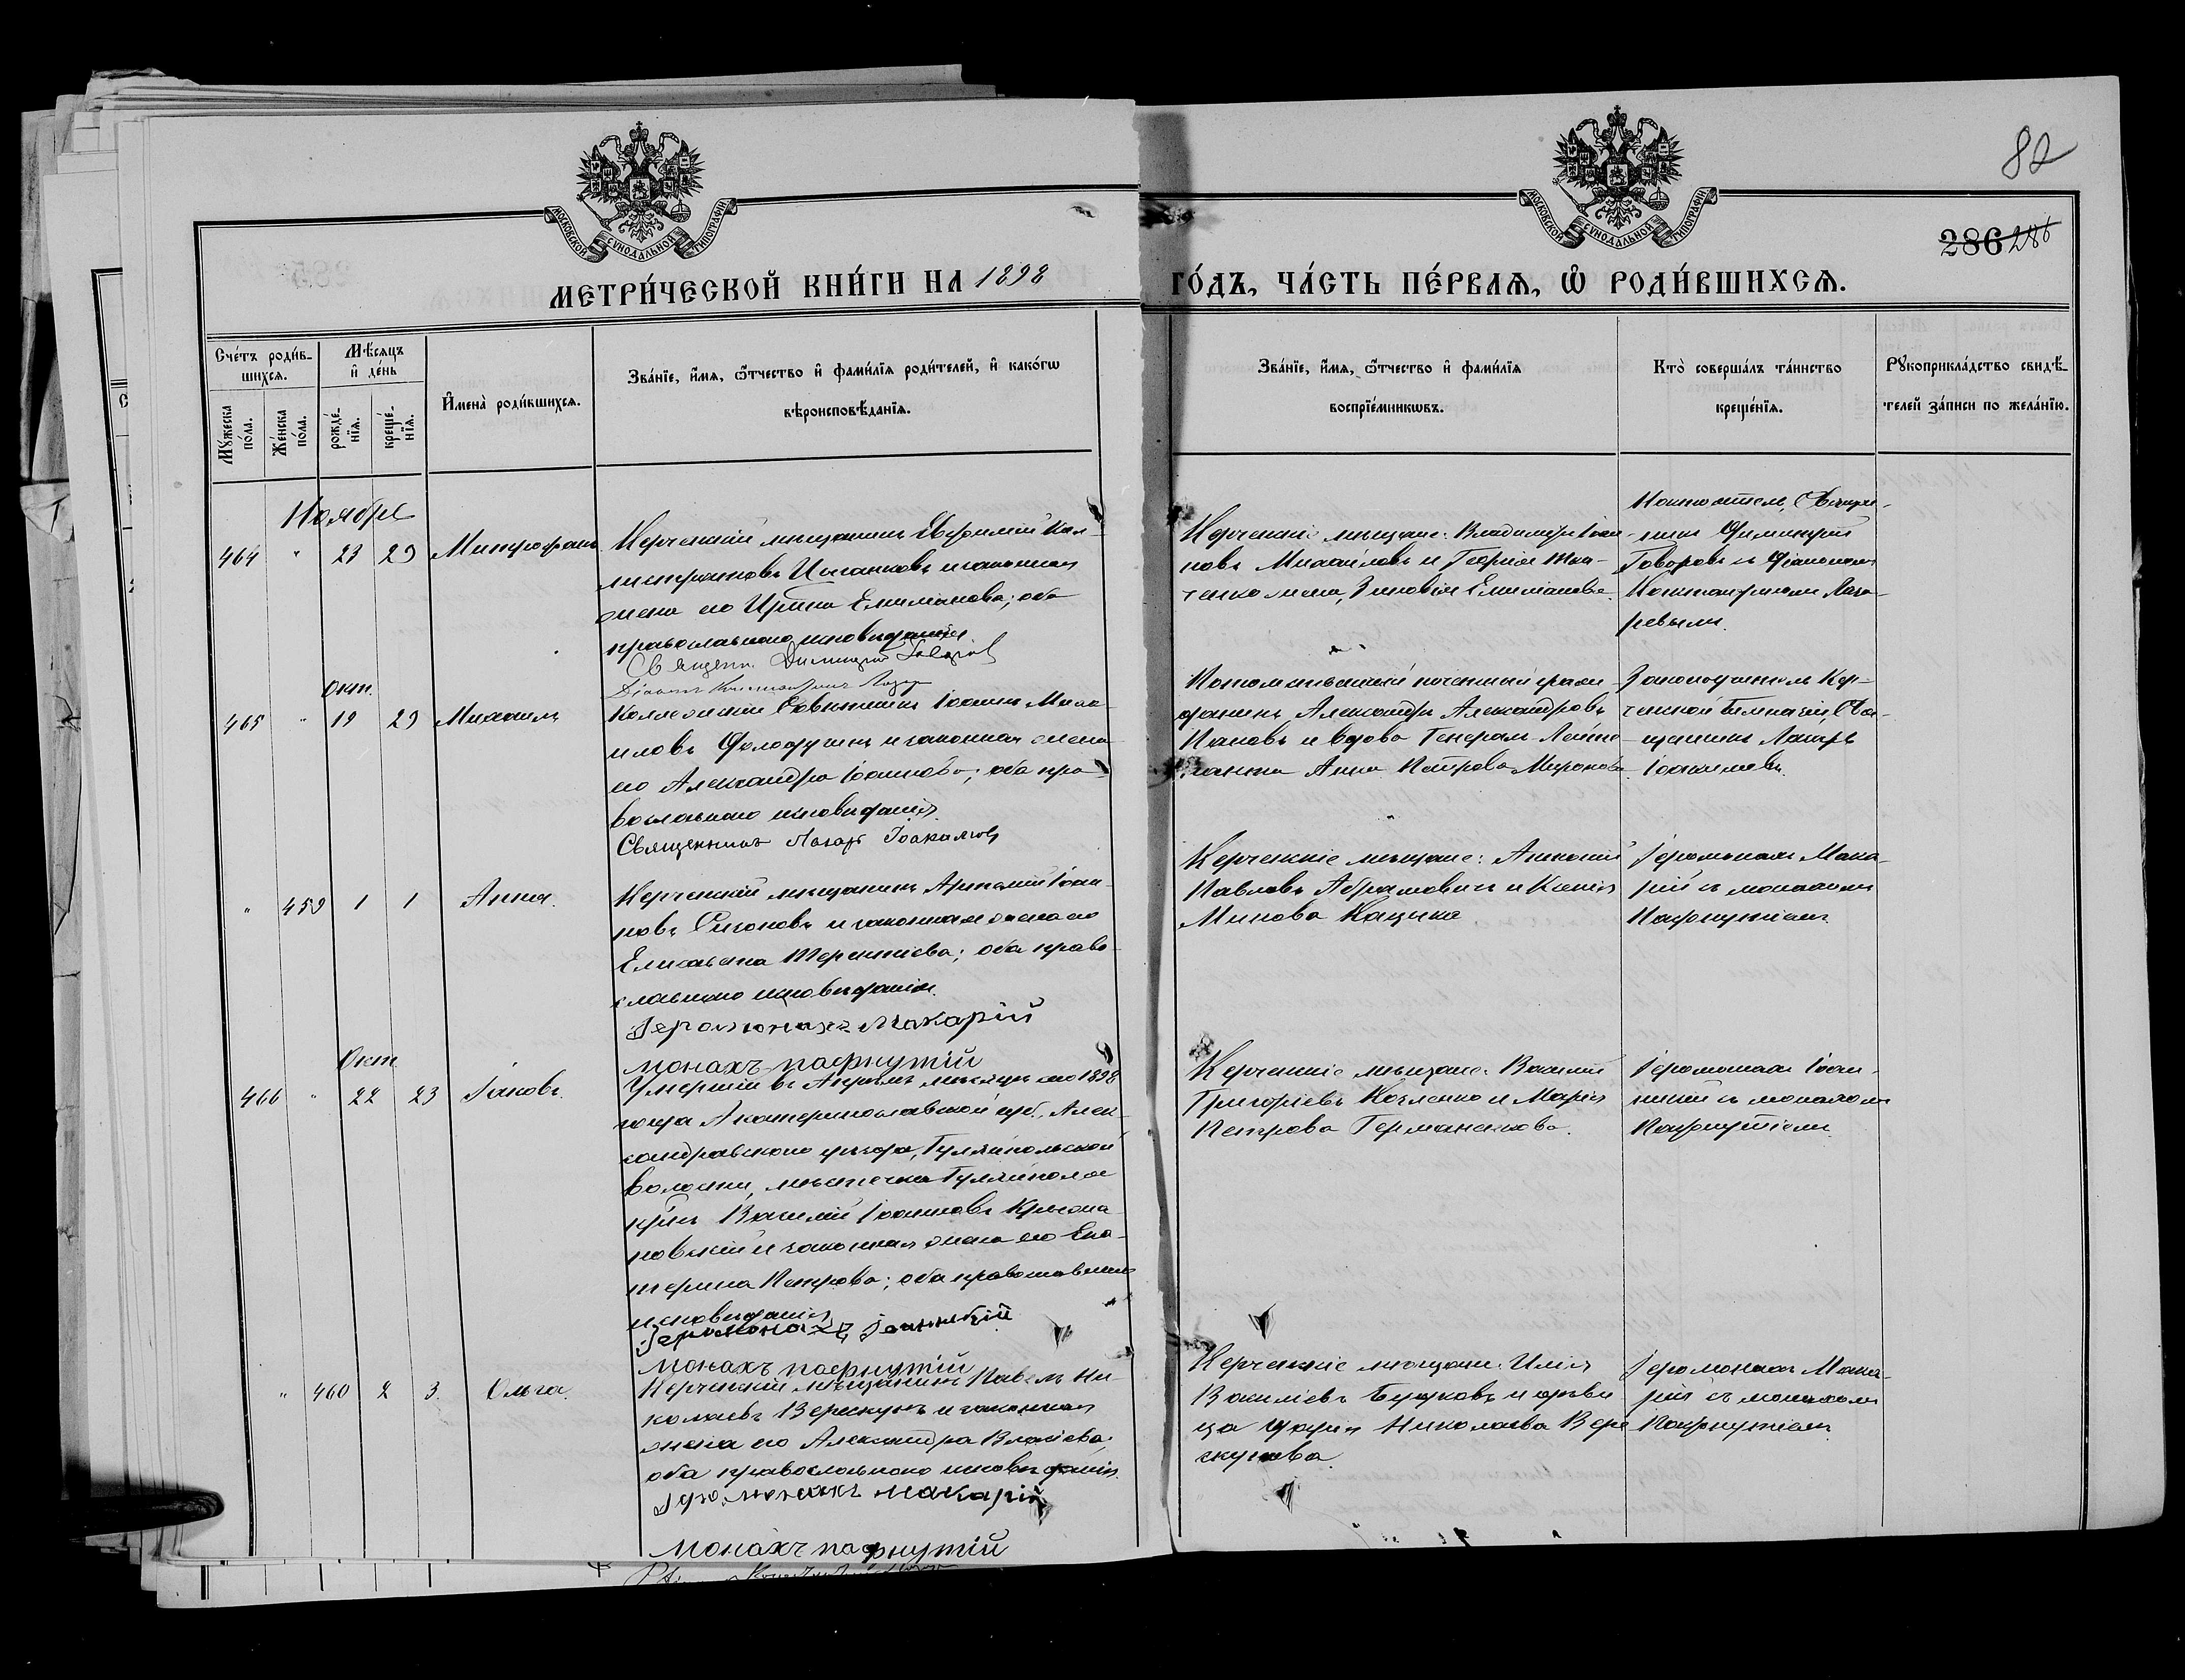 82
286 286
МОСКОВСКОЙ СѴНОДАЛЬНОЙ ТИПОГРАФІИ
МОСКОВСКОЙ СѴНОДАЛЬНОЙ ТИПОГРАФІИ
МЕТРИ́ЧЕСКОЙ КНИ́ГИ НА 1898 ГО́ДЪ, ЧА́СТЬ ПЕ́РВАѦ, Ѽ РОДИ́ВШИХСѦ.
Сче́тъ роди́в-
шихсѧ.
Мꙋ́жеска по́ла.
Же́нска по́ла.
Мѣ́сѧцъ
и҆ де́нь
рожде́-
нїѧ.
креще́-
нїѧ.
И҆мена̀ роди́вшихсѧ.
Зва́нїе, и҆́мѧ, ѻ҆́тчество и҆ фами́лїѧ роди́телей, и҆ како́гѡ
вѣроисповѣ́данїѧ.
Зва́нїе, и҆́мѧ, ѻ҆́тчество и҆ фами́лїѧ
воспрїе́мникѡвъ.
Кто̀ соверша́лъ та́инство
креще́нїѧ.
Рꙋкоприкла́дство свидѣ́-
телей за́писи по жела́нїю.
Ноября
464 " 23 29 Митрофанъ
Керченскій мѣщанинъ Евфимій Кал-
листратовъ Цыганковъ и законная
жена его Ирина ; оба
православнаго исповѣданія
Священ. Димитрій Говоров
Діаконъ Константинъ Лазар
Керченскіе мѣщане: Владиміръ Іоан-
новъ Михаиловъ и Георгія Тка-
ченко жена, Зиновія
Настоятель, Священ-
никъ Димитрій
Говоровъ съ Діакономъ
Константиномъ Лаза-
ревымъ.
Окт.
465 " 19 29 Михаилъ
Коллежскій Совѣтникъ Іоаннъ Миха-
иловъ и законная жена
его Александра Іоаннова; оба пра-
вославнаго исповѣданія.
Священникъ Лазарь Іоакимовъ
Потомственный почетный граж-
данинъ Александръ Александровъ
Пановъ и вдова Генералъ-Лейте-
нанта Анна Петрова Миронова.
Законоучитель Кер-
ченской Гимназіи, Свя-
щенникъ Лазарь
Іоакимовъ.
" 459 1 1 Анна.
Керченскій мѣщанинъ Артемій Іоан-
новъ и законная жена его
Елисавета Терентіева; оба право-
славнаго исповѣданія.
Іеромонахъ Макарій
монахъ пафнутій
Керченскіе мѣщане: Антоній
Павловъ Абрамовичъ и Ксенія
Минова Кацика.
Іеромонахъ Мака-
рій съ монахомъ
Пафнутіемъ.
Окт
466 " 22 23 Іаковъ.
Умершій въ Апрѣлѣ мѣсяцѣ сего 1898
года Екатеринославской губ., Алек-
сандровскаго уѣзда, Гуляйпольской
волости, мѣстечка Гуляйполя
кр-нъ Василій Іоанновъ
и законная жена его Ека-
терина Петрова; оба православнаго
исповѣданія
Іеромонахъ Іоанникій
монахъ пафнутій
Керченскіе мѣщане: Василій
Григоріевъ Козленко и Марія
Петрова Германенкова.
Іеромонахъ Іоан-
никій съ монахомъ
Пафнутіемъ.
" 460 2 3. Ольга.
Керченскій мѣщанинъ Павелъ Ни-
колаевъ Верескунъ и законная
жена его Александра Власіева;
оба православнаго исповѣданія.
Іеромонахъ макарій
монахъ пафнутій
Керченскіе мѣщане: Илія
Василіевъ Будковъ и дѣви-
ца Дарія Николаева Вере-
скунова.
Іеромонахъ Мака-
рій съ монахомъ
Пафнутіемъ.